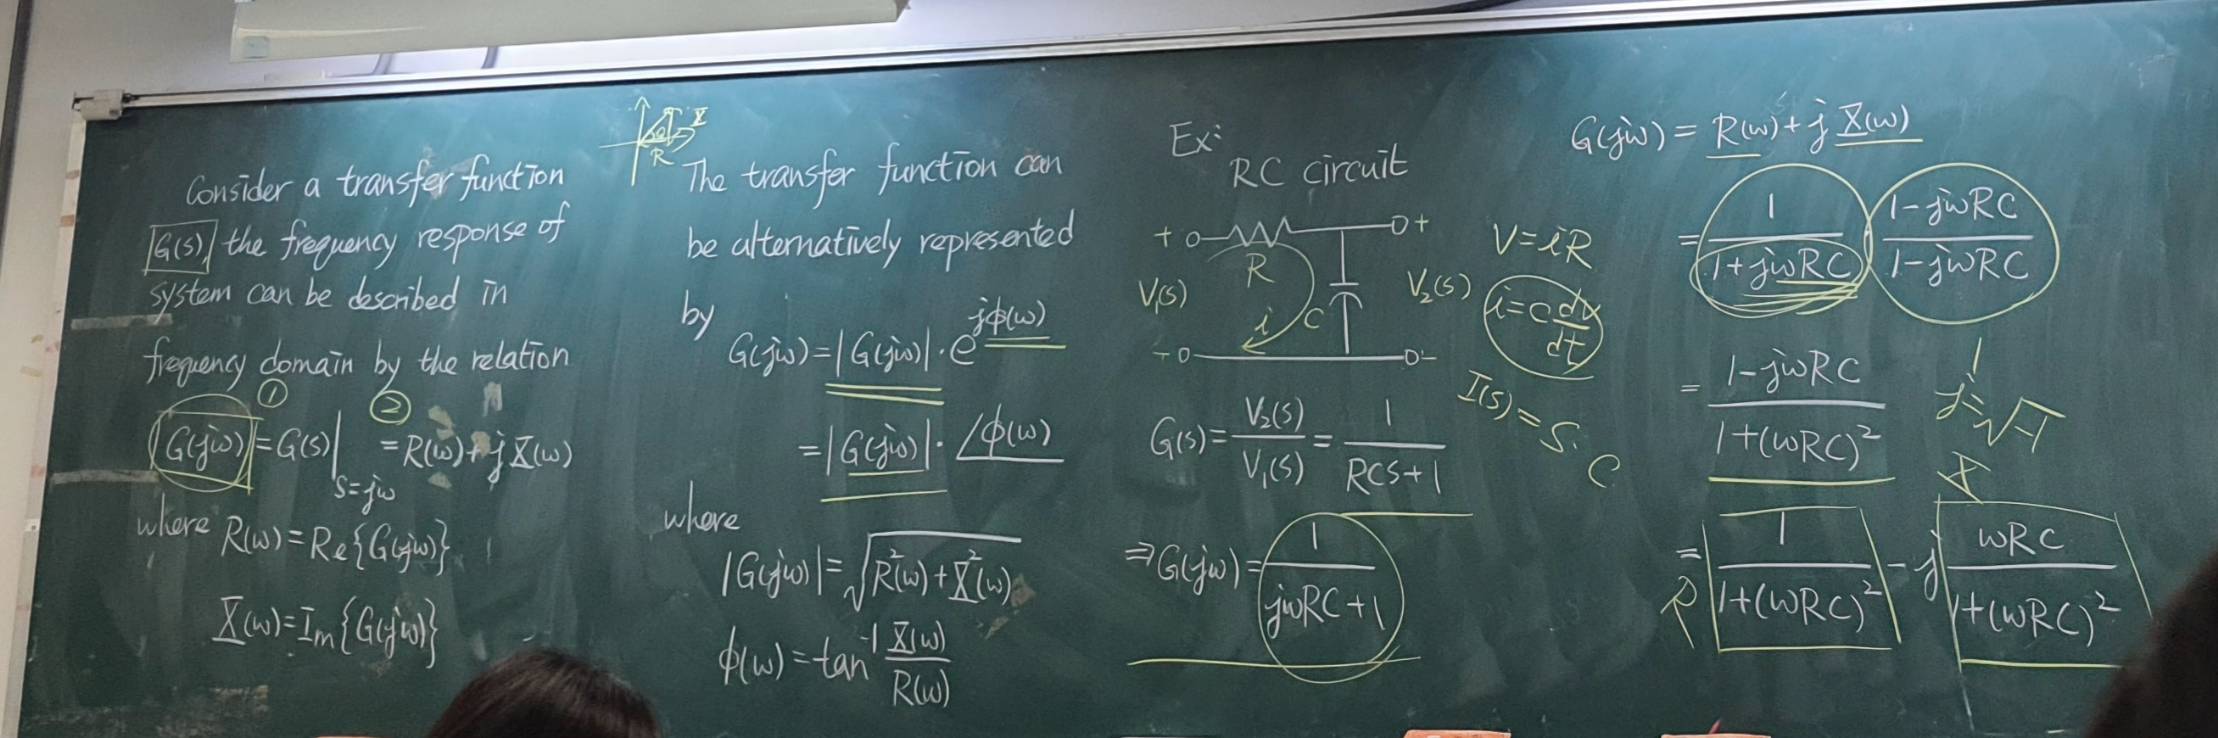 Consider a transfer function
G(s), the frequency response of
system can be described in
frequency domain by the relation
① ②
G(jω) = G(s)|s=jω = R(ω) + j X(ω)
where R(ω) = Re{G(jω)}
X(ω) = Im{G(jω)}
X
R
The transfer function can
be alternatively represented
by
G(jω) = |G(jω)| · e^jφ(ω)
= |G(jω)| · ∠φ(ω)
where
|G(jω)| = √R²(ω) + X²(ω)
φ(ω) = tan⁻¹ X(ω)/R(ω)
Ex:
RC circuit
+ +
R
V₁(s) i C V₂(s)
- -
V = iR
i = C dv/dt
I(s) = S · C
G(s) = V₂(s)/V₁(s) = 1/RCS+1
⇒ G(jω) = 1/jωRC+1
G(jω) = R(ω) + j X(ω)
= 1/1+jωRC · 1-jωRC/1-jωRC
= 1-jωRC/1+(ωRC)²
j = √-1
X
= 1/1+(ωRC)² - j ωRC/1+(ωRC)²
R